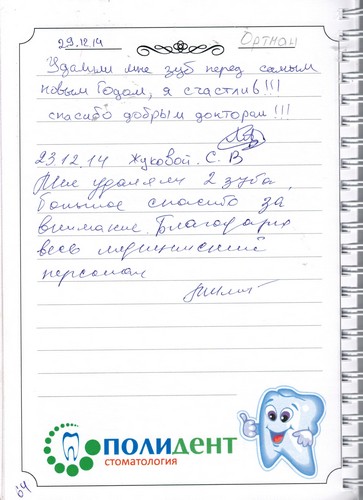 29.12.14
Удалили мне зуб перед самым
новым Годом, я счастлив!!!
спасибо добрым докторам!!!
23.12.14 Жуковой. С. В
Мне удаляли 2 зуба,
большое спасибо за
внимание. Благодарю
весь медицинский
персонал
ПОЛИДЕНТ
СТОМАТОЛОГИЯ
64